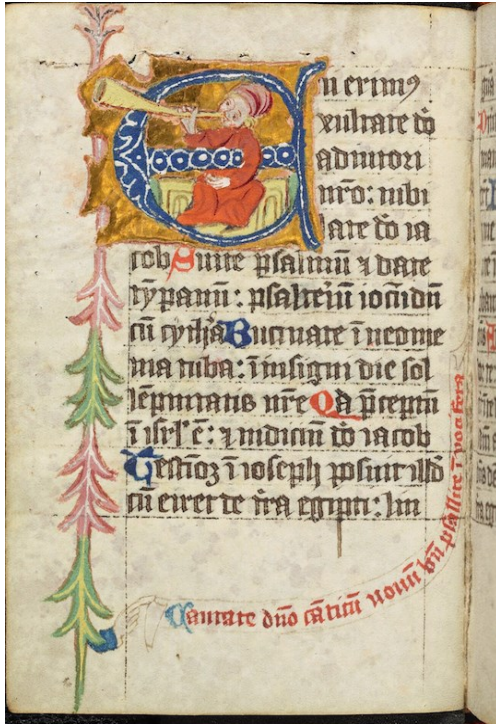 u erimꝰ
xultate dō
adiutori
nr̄o: iubi
late dō ia
cob Sūite psalmū ⁊ date
tȳpanū: psalteriū iocūdū
cū cythā Buccinate ī neome
nia tuba: ī insigni die sol
lēpnitatis nr̄e Qa p̄ceptū
ī isrl' ē: ⁊ iudiciū dō iacob
Testīoꝫ ī ioseph posuit illd̄
cū exiret de tr̄a egipti: lin
Cantate dn̄o cāticū nouū bn̄ psallite ī vocifera